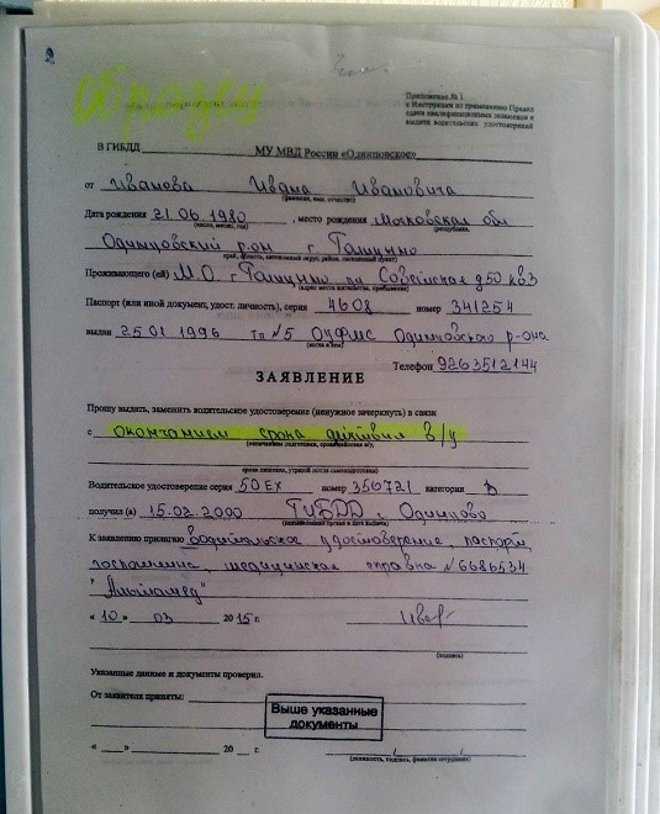 образец
Приложение № 1
к Инструкции по применению Правил
сдачи квалификационных экзаменов и
выдачи водительских удостоверений
В ГИБДД МУ МВД России «Одинцовское»
от Иванова Ивана Ивановича
(фамилия, имя, отчество)
Дата рождения 21.06 1980, место рождения Московская обл
(число, месяц, год) (республика,
Одинцовский р-он г. Голицыно
край, область, автономный округ, район, населенный пункт)
Проживающего (ей) М.О. г. Голицыно Советская д 50 кв 3
Паспорт (или иной документ, удост. личность), серия 4608 номер 341254
выдан 25 01 1996 ТП №5 ОУФМС Одинцовского р-она
(когда и кем)
Телефон 9263512144
ЗАЯВЛЕНИЕ
Прошу выдать, заменить водительское удостоверение (ненужное зачеркнуть) в связи
с окончанием срока действия в/у
Водительское удостоверение серия 50 ЕХ номер 356721 категория В
получил (а) 15.02.2000 ГИБДД г. Одинцово
К заявлению прилагаю водительское удостоверение, паспорт,
госпошлина, медицинская справка №6686534
"
« 10 » 03 20 15 г.
(подпись)
Указанные данные и документы проверил.
От заявителя приняты:
Выше указанные
документы
« » 20 г.
(должность, подпись, фамилия сотрудника)